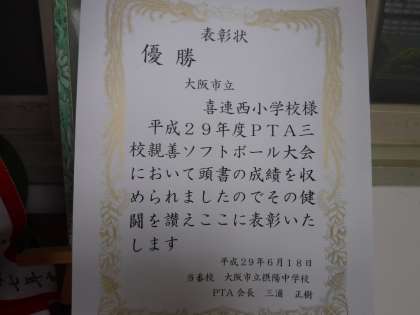 表彰状
優勝
大阪市立
喜連西小学校様
平成29年度PTA三
校親善ソフトボール大会
において頭書の成績を収
められましたのでその健
闘を讃えここに表彰いた
します
平成29年6月18日
当番校 大阪市立摂陽中学校
PTA会長 三浦 正樹